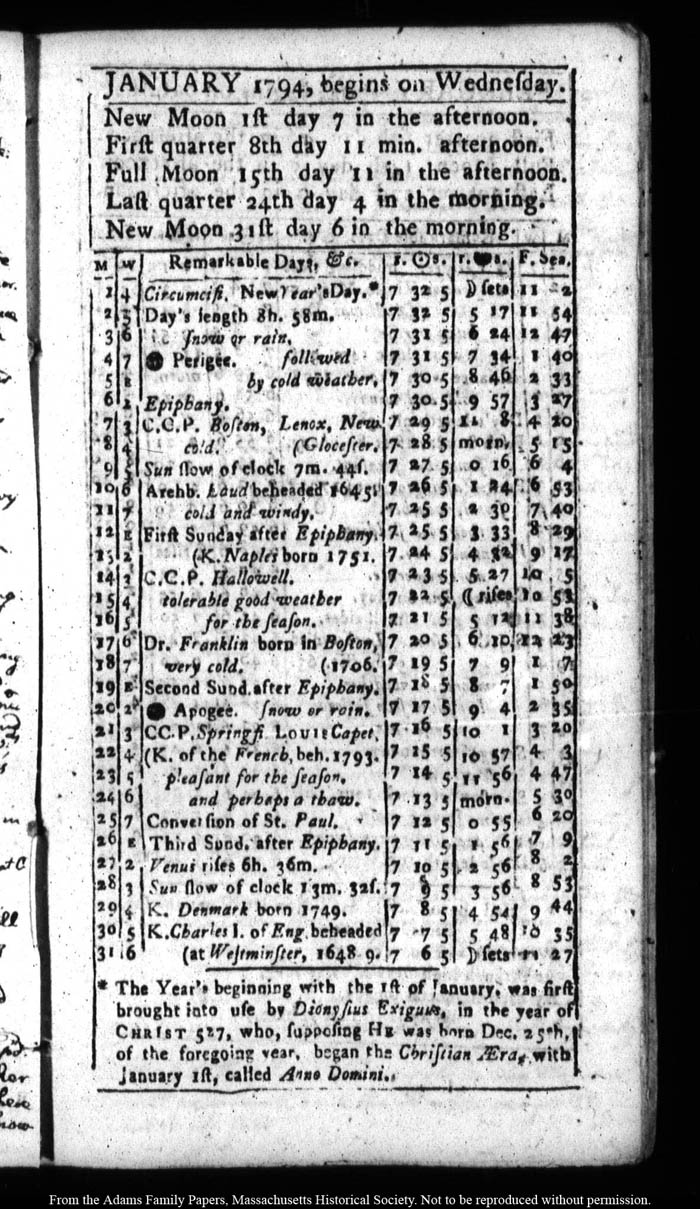 JANUARY 1794, begins on Wedneſday.
New Moon 1ſt day 7 in the afternoon.
Firſt quarter 8th day 11 min. afternoon.
Full Moon 15th day 11 in the afternoon.
Laſt quarter 24th day 4 in the morning.
New Moon 31ſt day 6 in the morning.
M W Remarkable Days, &c. r. ☉ s. r. s. F. Sea.
1 4 Circumciſi. New Year's Day.* 7 32 5 ☽ ſets 11 2
2 5 Day's length 8h. 58m. 7 32 5 5 17 11 54
3 6 ſnow or rain, 7 31 5 6 24 12 47
4 7 ● Perigee. followed 7 31 5 7 34 1 40
5 E by cold weather. 7 30 5 8 46 2 33
6 2 Epiphany. 7 30 5 9 57 3 27
7 3 C.C.P. Boſton, Lenox, New 7 29 5 11 8 4 20
8 4 cold. (Gloceſter. 7 28 5 morn. 5 15
9 5 Sun ſlow of clock 7m. 44ſ. 7 27 5 0 16 6 4
10 6 Archb. Laud beheaded 1645. 7 26 5 1 24 6 53
11 7 cold and windy, 7 25 5 2 30 7 40
12 E Firſt Sunday after Epiphany. 7 25 5 3 33 8 29
13 2 (K. Naples born 1751. 7 24 5 4 32 9 17
14 3 C.C.P. Hallowell. 7 23 5 5 27 10 5
15 4 tolerable good weather 7 22 5 ☾ riſes 10 53
16 5 for the ſeaſon. 7 21 5 5 12 11 38
17 6 Dr. Franklin born in Boſton, 7 20 5 6 10 12 23
18 7 very cold. (1706. 7 19 5 7 9 1 7
19 E Second Sund. after Epiphany. 7 18 5 8 7 1 50
20 2 ● Apogee. ſnow or rain. 7 17 5 9 4 2 35
21 3 CC.P. Springfi. LOUIS Capet, 7 16 5 10 1 3 20
22 4 (K. of the French, beh. 1793. 7 15 5 10 57 4 3
23 5 pleaſant for the ſeaſon, 7 14 5 11 56 4 47
24 6 and perhaps a thaw. 7 13 5 morn. 5 30
25 7 Converſion of St. Paul. 7 12 5 0 55 6 20
26 E Third Sund. after Epiphany. 7 11 5 1 56 7 9
27 2 Venus riſes 6h. 36m. 7 10 5 2 56 8 2
28 3 Sun ſlow of clock 13m. 32ſ. 7 9 5 3 56 8 53
29 4 K. Denmark born 1749. 7 8 5 4 54 9 44
30 5 K. Charles I. of Eng. beheaded 7 7 5 5 48 10 35
31 6 (at Weſtminſter, 1648 9. 7 6 5 ☽ ſets 11 27
* The Year's beginning with the 1ſt of January, was firſt
brought into uſe by Dionyſius Exiguus, in the year of
CHRIST 527, who, ſuppoſing HE was born Dec. 25th,
of the foregoing year, began the Chriſtian Æra, with
January 1ſt, called Anno Domini.
From the Adams Family Papers, Massachusetts Historical Society. Not to be reproduced without permission.